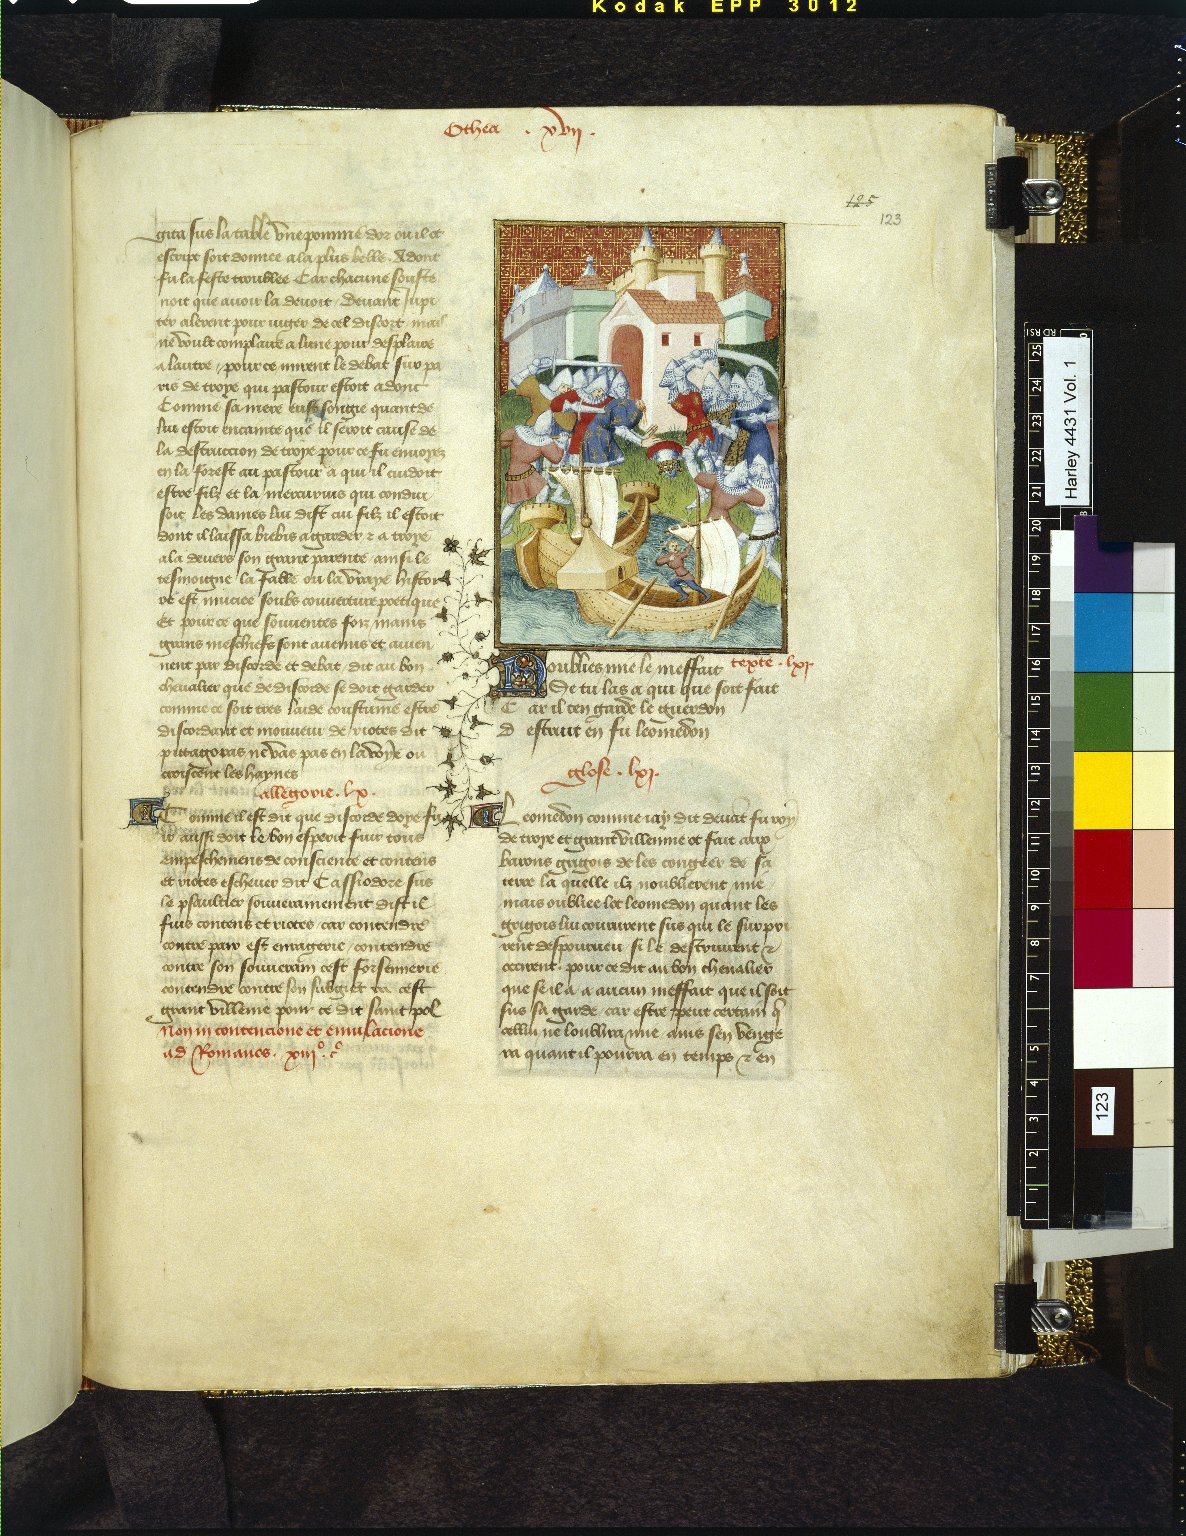 Kodak EPP 3012
Othea . xvii .
125
123
gita sus la table une pomme dor ou il et
escript soit donnee a la plus belle . Adont
fu la feste troublee Car chacune souste
noit que avoir la devoit / Devant Jupi
ter alerent pour iugier de cel discort mais
ne voult complaire a lune pour desplaire
a lautre / pour ce mirent le debat sur pa
ris de troye qui pastour estoit adont
Comme sa mere eust songie quant de
lui estoit encainte que il seroit cause de
la destruccion de troye pour ce fu envoyez
en la forest au pastour a qui il cuidoit
estre filz et la mercurius qui condui
soit les dames lui dist cui filz il estoit
dont il laissa brebis a garder & a troye
ala devers son grant parente ainsi le
tesmoigne la fable ou la vraye histoi
re est muciee soubs couverture poetique
Et pour ce que souventes foiz mains
grans meschiefs sont avenus et avien
nent par discorde et debat dit au bon
chevalier que de discorde se doit garder
comme ce soit tres laide coustume estre
discordant et mouveur de riotes dit
pittagoras ne vas pas en la voye ou
croiscent les haynes
allegorie . lx .
Comme il est dit que discorde doye fu
ir aussi doit le bon esperit fuir tous
empeschemens de conscience et contens
et riotes eschever dit Cassiodore sus
le psaultier souverainement dist il
fuis contens et riotes / car contendre
contre pair est enragerie / contendre
contre son souverain cest forsennerie
contendre contre son subgiet ca cest
grant villenie pour ce dit saint pol
Non in contencione et emulacione
ad Romanos . xiii° . c°
Noublies mie le meffait texte . lxi .
Se tu las a qui que soit fait
Car il ten garde le guerdon
Destruit en fu leomedon
glose . lxi .
Leomedon comme iay dit devat fu roy
de troye et grant villennie ot fait aux
barons gregois de les congeer de sa
terre la quelle ilz noublierent mie
mais oubliee lot leomedon quant les
gregois lui coururent sus qui le surpri
rent despourveu si le destruirent &
occirent . pour ce dit au bon chevalier
que se il a a aucun meffait que il soit
sus sa garde / car estre peut certain q̃
cellui ne loublira mie ains sen venge
ra quant il pourra en temps & en
Harley 4431 Vol. 1
25
24
23
22
21
20
19
18
17
16
15
14
13
12
11
10
9
8
7
6
5
4
3
2
1
123